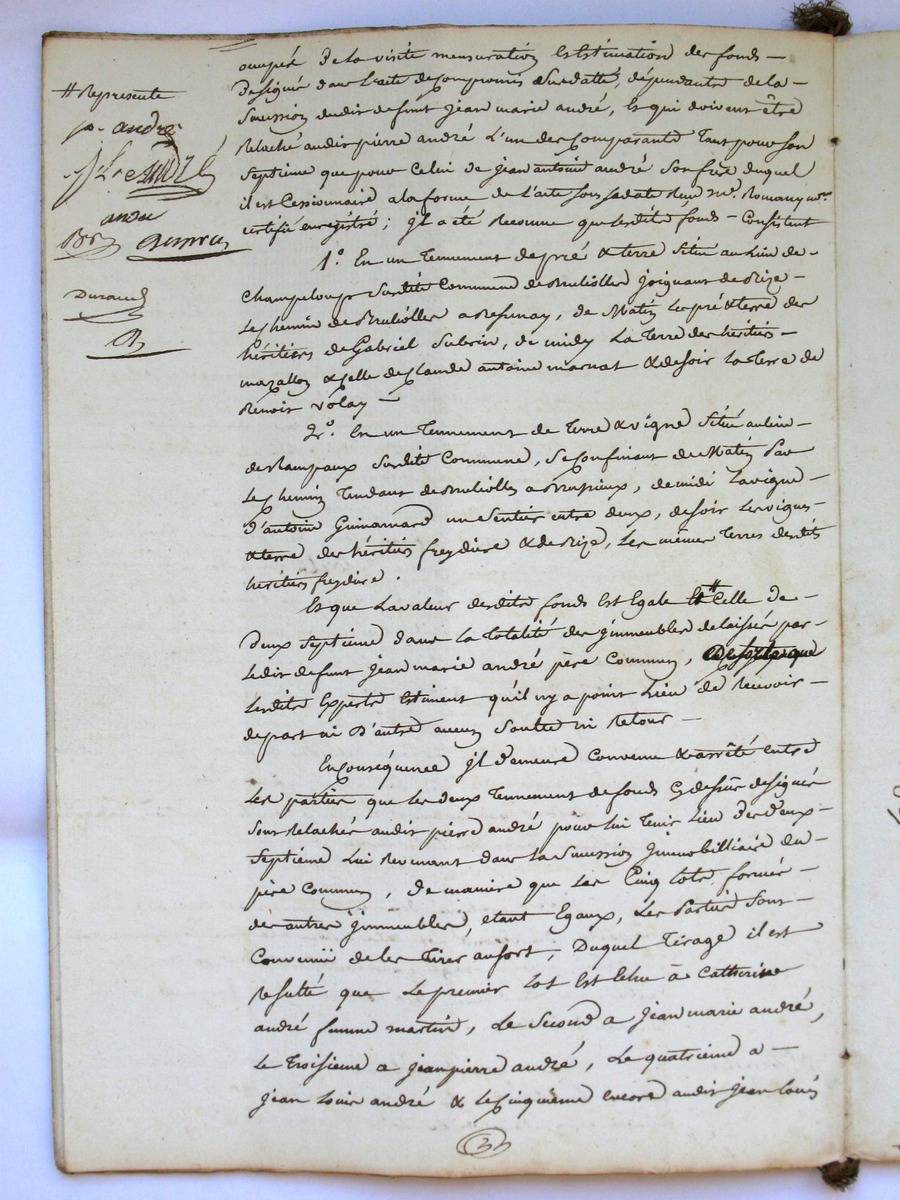 # Represente
p. andré
andre
Durand
occupés de la visite mensuration & Estimation des fonds
Designés dans l'acte de compromis Susdatté, dépendants de la
Succession dudit defunt jean marie andré, Et qui doivent être
Relaché audit pierre andré L'un des Comparants Tant pour son
Septieme que pour Celui de jean antoine andré Son frere duquel
il est Cessionnaire a la forme de l'acte Sous Sa date Reçu me. Romany
certifié enregistré; jl a été Reconnu que lesdits fonds Consistent
1º. En un Tennement de pré & terre Situé au Lieu de
Champeloup Susdite Commune de Brulioles joignant de Bize
Le chemin de Brulioles a Bessenay, de Matin Le pré & terre des
héritiers de Gabriel Subrin, de midy La Terre des héritiers
mazallon & Celle de Claude antoine marnat & de soir La Terre de
Benoit Volay
2º. En un Tennement de Terre & vigne Situé au lieu
de Rampaux Susdite Commune, Se Confinant de Matin Par
Le chemin Tendant de Brulioles a Brussieux, de midi La vigne
D'antoine Guinamard un Sentier entre deux, de soir Les vignes
& terre des héritiers freydiere & de Bize, Les mêmes Terres desdits
heritiers freydiere.
Et que La valeur desdits fonds Est Egale # Celle de
Deux Septieme dans La Totalité des jmmeubles delaissés par
Ledit defunt jean marie andré père Commun,
Lesdits Experts Estiment qu'il n'y a point Lieu de Recevoir
de part ni D'autre aucun Soulte ni Retour
En Conséquence jl Demeure Convenu & arrêté entre
Les parties que Les deux Tennement de fonds Cy dessus designés
Sont Relachés audit pierre andré pour lui Tenir Lieu Des Deux
Septieme Lui Revenant dans La Succession Jmmobilliaire du
père Commun, De maniere que Les Cinq Lots, formés
des autres jmmeubles, etant Egaux, Les Parties Sont
Convenu de les Tirer au sort, Duquel Tirage il est
Resulté que Le premier Lot Est Echu à Catherine
andré femme martin, Le Second a jean marie andré,
Le Troisieme a jean pierre andré, Le quatrieme a
jean Louis andré & Le Cinquieme encore audit jean Louis